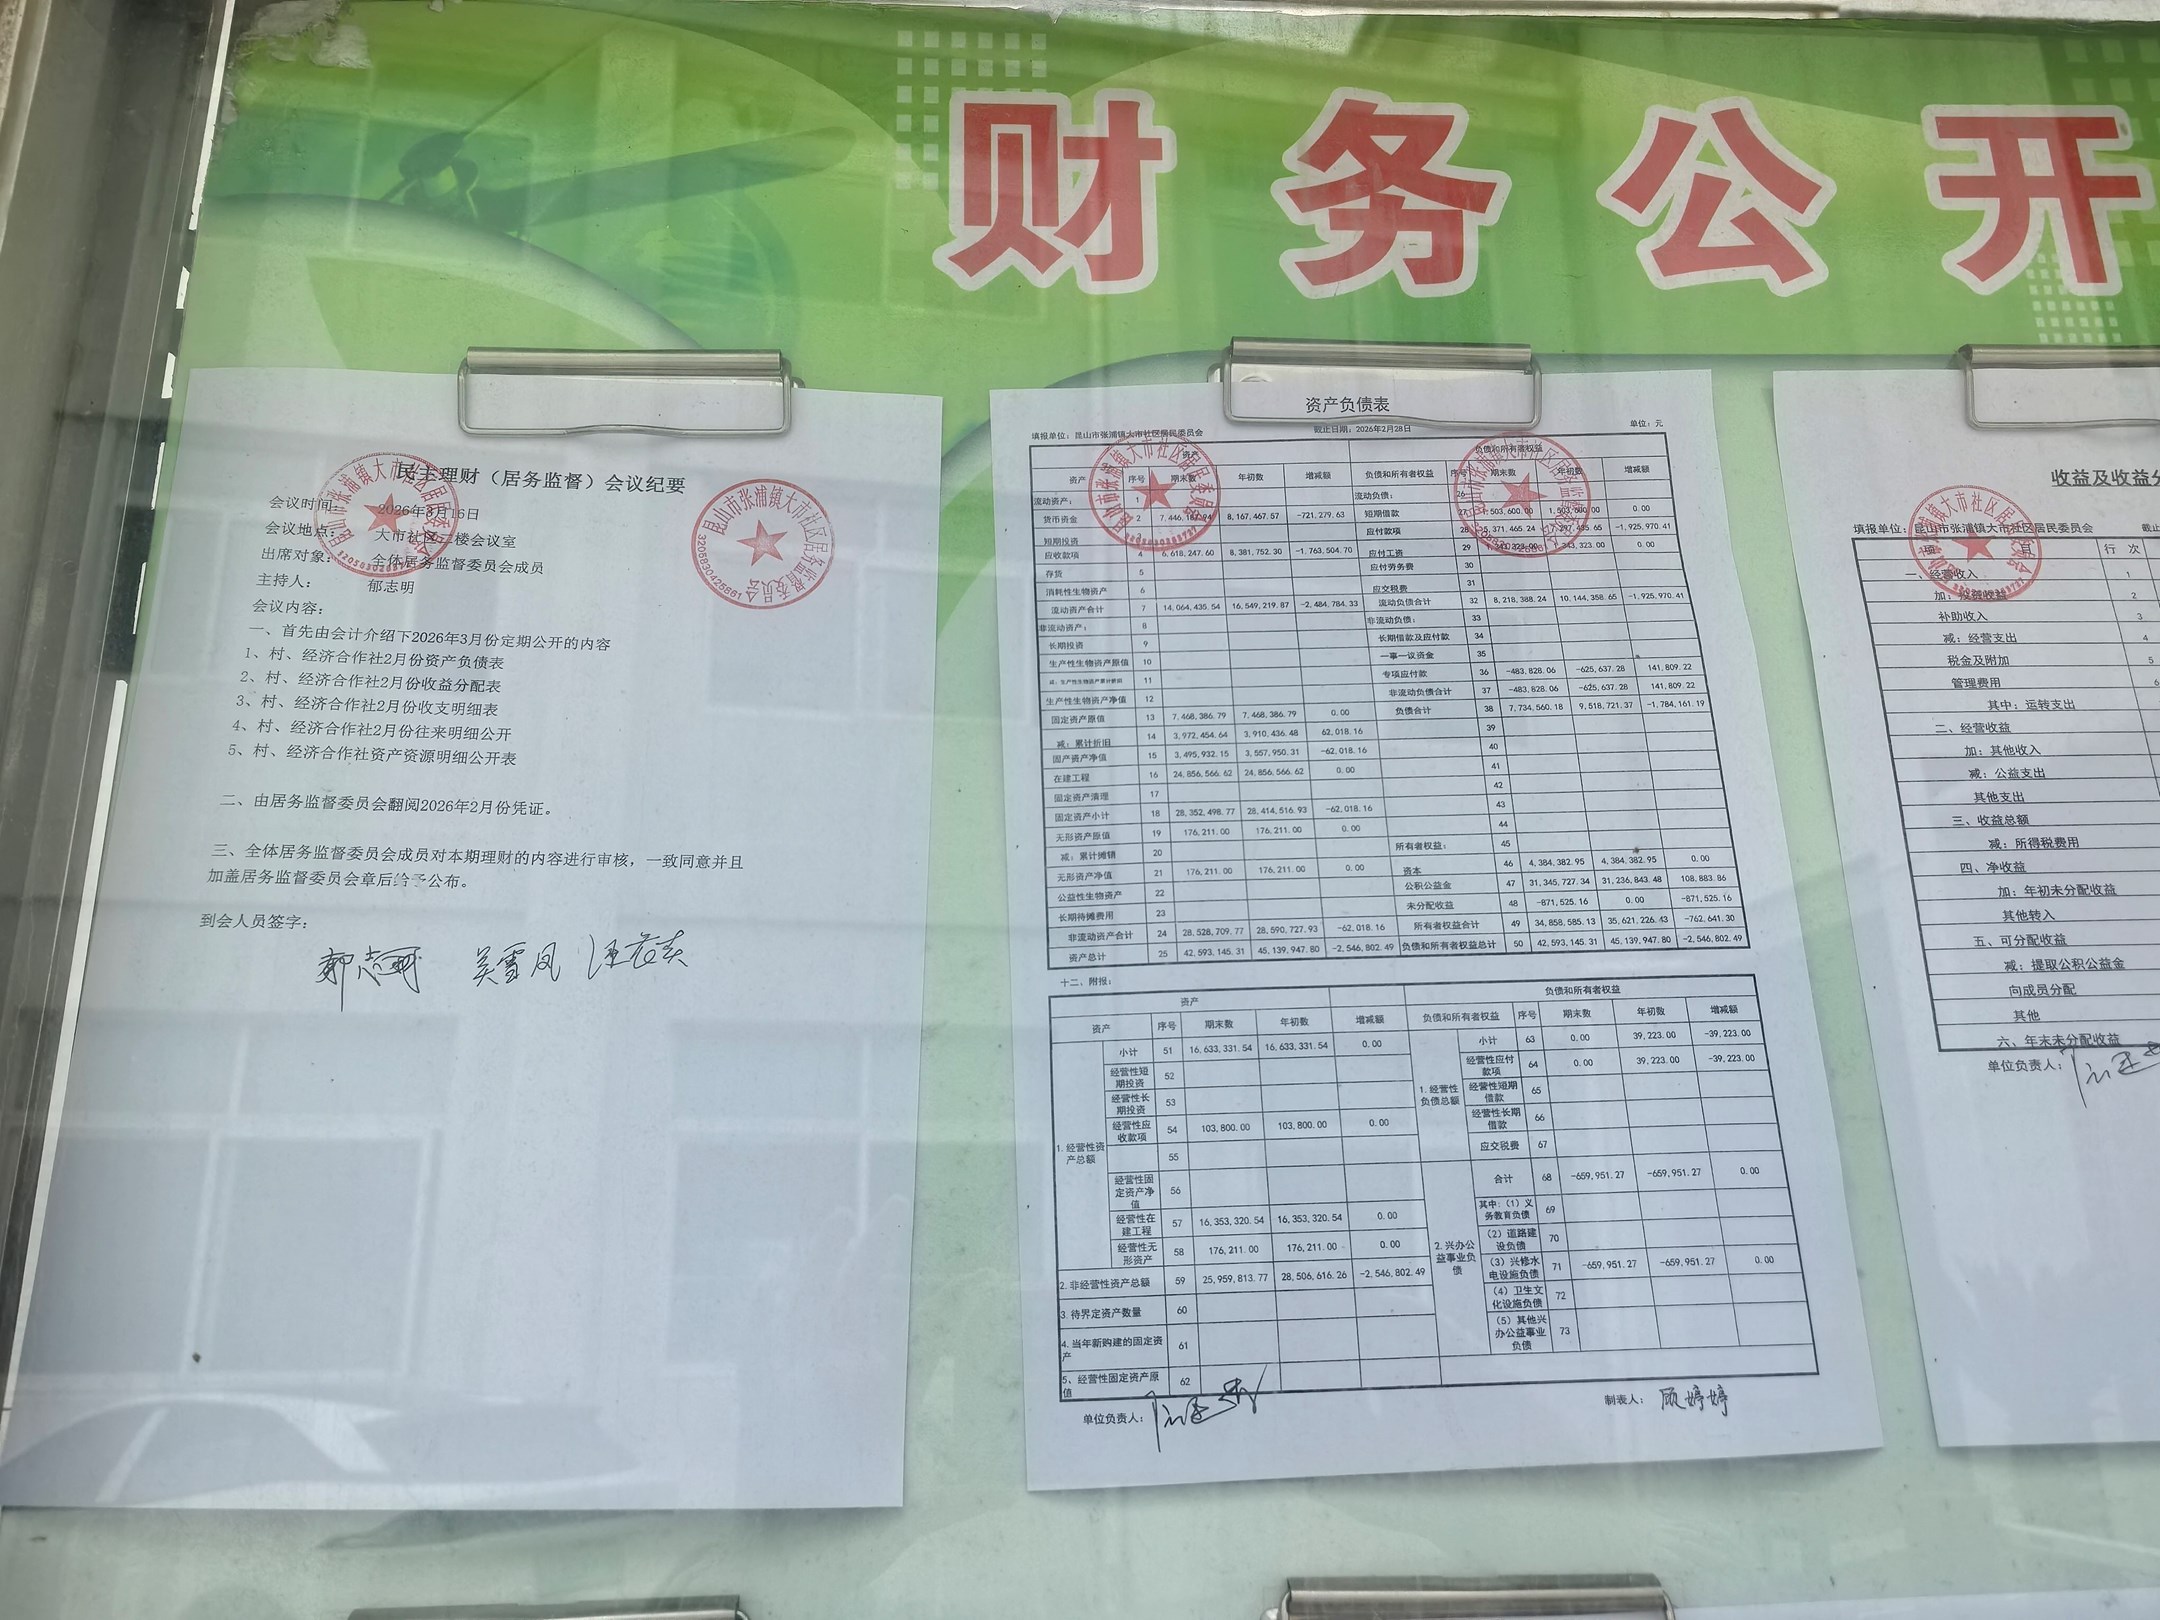 财务公开
民主理财（居务监督）会议纪要
会议时间： 2026年3月16日
会议地点： 大市社区二楼会议室
出席对象： 全体居务监督委员会成员
主持人： 郁志明
会议内容：
一、首先由会计介绍下2026年3月份定期公开的内容
1、村、经济合作社2月份资产负债表
2、村、经济合作社2月份收益分配表
3、村、经济合作社2月份收支明细表
4、村、经济合作社2月份往来明细公开
5、村、经济合作社资产资源明细公开表
二、由居务监督委员会翻阅2026年2月份凭证。
三、全体居务监督委员会成员对本期理财的内容进行审核，一致同意并且
加盖居务监督委员会章后给予公布。
到会人员签字：
吴雪凤
资产负债表
填报单位：昆山市张浦镇大市社区居民委员会 截止日期：2026年2月28日 单位：元
资产 负债和所有者权益
资产 序号 期末数 年初数 增减额 负债和所有者权益 序号 期末数 年初数 增减额
流动资产： 1 流动负债： 26
货币资金 2 8,167,467.57 -721,279.63 短期借款 27 1,503,600.00 1,503,600.00 0.00
短期投资 应付款项 28 5,371,465.24 7,297,435.65 -1,925,970.41
应收款项 4 6,618,247.60 8,381,752.30 -1,763,504.70 应付工资 29 0.00
存货 5 应付劳务费 30
消耗性生物资产 6 应交税费 31
流动资产合计 7 14,064,435.54 16,549,219.87 -2,484,784.33 流动负债合计 32 8,218,388.24 10,144,358.65 -1,925,970.41
非流动资产： 8 非流动负债： 33
长期投资 9 长期借款及应付款 34
生产性生物资产原值 10 一事一议资金 35
减：生产性生物资产累计折旧 11 专项应付款 36 -483,828.06 -625,637.28 141,809.22
生产性生物资产净值 12 非流动负债合计 37 -483,828.06 -625,637.28 141,809.22
固定资产原值 13 7,468,386.79 7,468,386.79 0.00 负债合计 38 7,734,560.18 9,518,721.37 -1,784,161.19
减：累计折旧 14 3,972,454.64 3,910,436.48 62,018.16 39
固产资产净值 15 3,495,932.15 3,557,950.31 -62,018.16 40
在建工程 16 24,856,566.62 24,856,566.62 0.00 41
固定资产清理 17 42
固定资产小计 18 28,352,498.77 28,414,516.93 -62,018.16 43
无形资产原值 19 176,211.00 176,211.00 0.00 44
减：累计摊销 20 所有者权益： 45
无形资产净值 21 176,211.00 176,211.00 0.00 资本 46 4,384,382.95 4,384,382.95 0.00
公益性生物资产 22 公积公益金 47 31,345,727.34 31,236,843.48 108,883.86
长期待摊费用 23 未分配收益 48 -871,525.16 0.00 -871,525.16
非流动资产合计 24 28,528,709.77 28,590,727.93 -62,018.16 所有者权益合计 49 34,858,585.13 35,621,226.43 -762,641.30
资产总计 25 42,593,145.31 45,139,947.80 -2,546,802.49 负债和所有者权益总计 50 42,593,145.31 45,139,947.80 -2,546,802.49
十二、附报：
资产 负债和所有者权益
资产 序号 期末数 年初数 增减额 负债和所有者权益 序号 期末数 年初数 增减额
1.经营性资产总额 小计 51 16,633,331.54 16,633,331.54 0.00 1.经营性负债总额 小计 63 0.00 39,223.00 -39,223.00
经营性短期投资 52 经营性应付款项 64 0.00 39,223.00 -39,223.00
经营性长期投资 53 经营性短期借款 65
经营性应收款项 54 103,800.00 103,800.00 0.00 经营性长期借款 66
55 应交税费 67
经营性固定资产净值 56 2.兴办公益事业负债 合计 68 -659,951.27 -659,951.27 0.00
其中：（1）义务教育负债 69
经营性在建工程 57 16,353,320.54 16,353,320.54 0.00 （2）道路建设负债 70
经营性无形资产 58 176,211.00 176,211.00 0.00
2.非经营性资产总额 59 25,959,813.77 28,506,616.26 -2,546,802.49 （3）兴修水电设施负债 71 -659,951.27 -659,951.27 0.00
3.待界定资产数量 60 （4）卫生文化设施负债 72
4.当年新购建的固定资产 61 （5）其他兴办公益事业负债 73
5、经营性固定资产原值 62
单位负责人： 制表人： 顾婷婷
收益及收益分
填报单位：昆山市张浦镇大市社区居民委员会 截止
项目 行次
一、经营收入 1
加：投资收益 2
补助收入 3
减：经营支出 4
税金及附加 5
管理费用 6
其中：运转支出
二、经营收益
加：其他收入
减：公益支出
其他支出
三、收益总额
减：所得税费用
四、净收益
加：年初未分配收益
其他转入
五、可分配收益
减：提取公积公益金
向成员分配
其他
六、年末未分配收益
单位负责人：